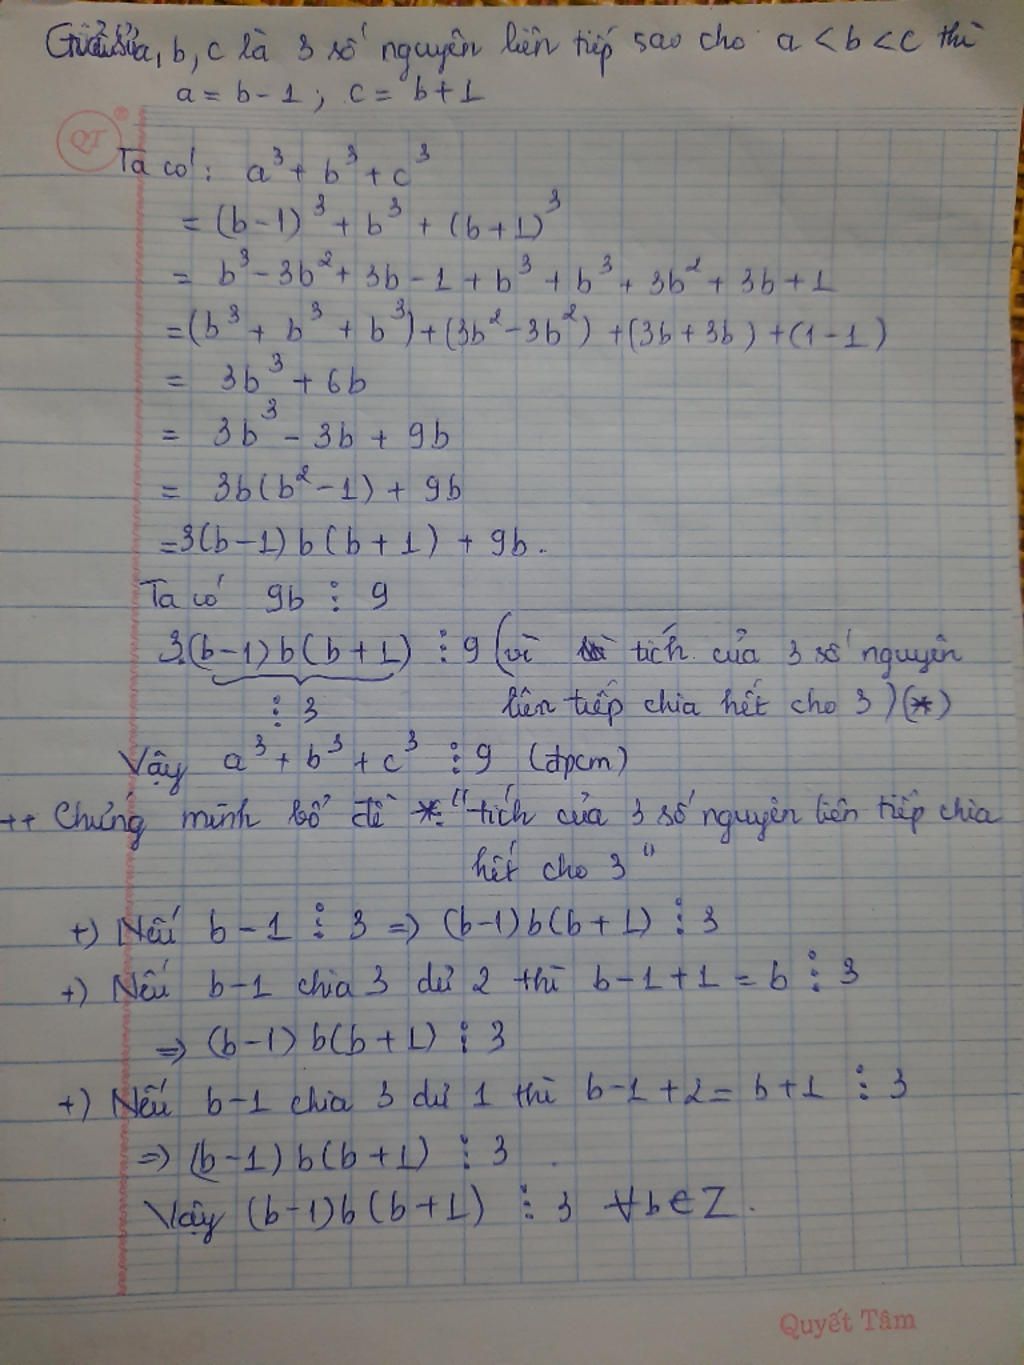 Giả sử a, b, c là 3 số nguyên liên tiếp sao cho a < b < c thì
a = b - 1 ; c = b + 1
QT
Ta có : a³ + b³ + c³
= (b - 1)³ + b³ + (b + 1)³
= b³ - 3b² + 3b - 1 + b³ + b³ + 3b² + 3b + 1
= (b³ + b³ + b³) + (3b² - 3b²) + (3b + 3b) + (1 - 1)
= 3b³ + 6b
= 3b³ - 3b + 9b
= 3b(b² - 1) + 9b
= 3(b - 1) b (b + 1) + 9b.
Ta có 9b ⋮ 9
3.(b - 1) b (b + 1) ⋮ 9 (vì tích của 3 số nguyên
⋮ 3 liên tiếp chia hết cho 3) (*)
Vậy a³ + b³ + c³ ⋮ 9 (đpcm)
++ Chứng minh bổ đề *: "tích của 3 số nguyên liên tiếp chia
hết cho 3"
+) Nếu b - 1 ⋮ 3 => (b - 1) b (b + 1) ⋮ 3
+) Nếu b - 1 chia 3 dư 2 thì b - 1 + 1 = b ⋮ 3
=> (b - 1) b (b + 1) ⋮ 3
+) Nếu b - 1 chia 3 dư 1 thì b - 1 + 2 = b + 1 ⋮ 3
=> (b - 1) b (b + 1) ⋮ 3 .
Vậy (b - 1) b (b + 1) ⋮ 3 ∀b ∈ Z.
Quyết Tâm